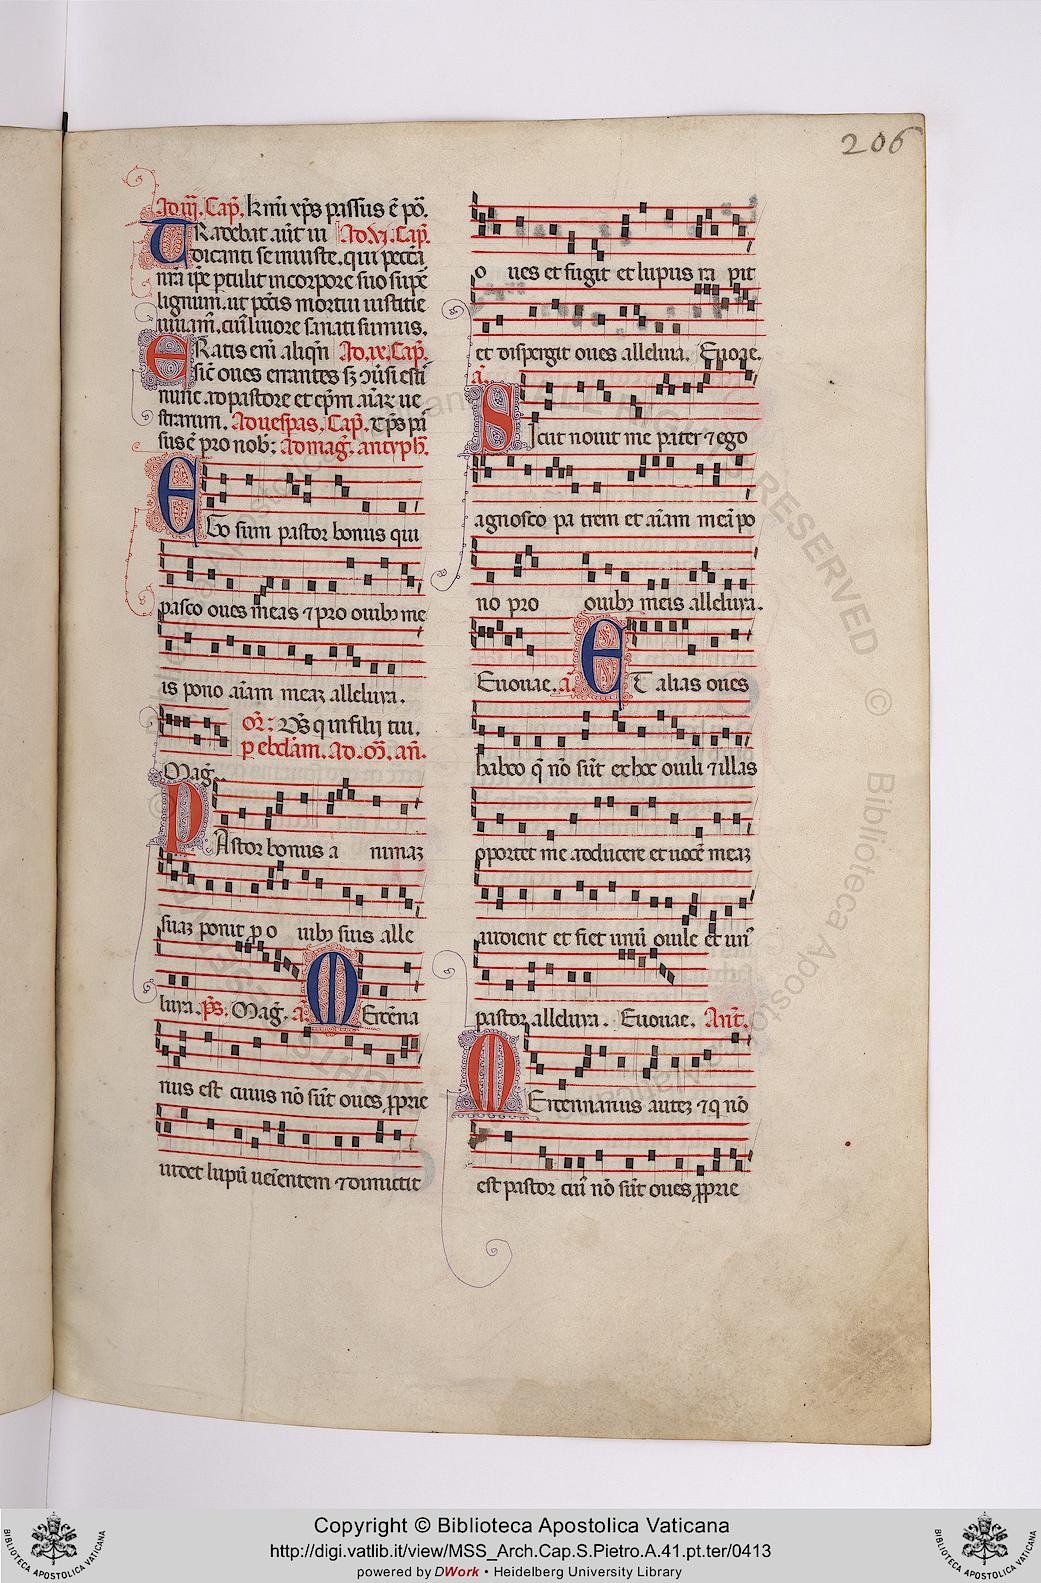 206
Ad iij. Cap̃. kr̃mi xp̃s passus ē ꝓ nõ.
TRadebat aūt iu Ad vi. Cap̃.
dicanti se iniuste. qui peccã
nr̃a ip̃e ꝑtulit in corpore suo sup̃
lignum. ut pctis mortui iustitie
uiuam̃. cui liuore sanati sumus.
ERatis eni aliqñ Ad. ix. Cap̃.
sic̃ oues errantes sꝫ ↄuersi esti
nunc ad pastorē et epm̃ aīaꝝ ue
straꝝum. Ad uespas. Cap̃. xp̃s pas
sus ē pro nob̃: Ad mag̃. antyph̃.
Ego sum pastor bonus qui
pasco oues meas ⁊ pro ouibꝫ me
is pono aīam meaꝫ alleluya.
Or̃: Ds̃ q in filij tui.
ꝑ ebdam̃. Ad. Mag̃. añ.
Mag̃.
PAstor bonus a nimaꝫ
suaꝫ ponit ꝓ o uibꝫ suis alle
luya. ps̃. Mag̃. a. MErcena
rius est cuius nõ sūt oues ꝓprie
uidet lupū ueientem ⁊ dimittit
o ues et fugit et lupus ra pit
et dispergit oues alleluia. Euouae.
añ.
SIcut nouit me pater ⁊ ego
agnosco pa trem et aīam meā po
no pro ouibꝫ meis alleluya.
Euouae. a. ET alias oues
habeo q̃ nõ sūt ex hoc ouili ⁊ illas
oportet me adducere et uocē meaꝫ
audient et fiet unū ouile et un᷒
pastor alleluya. Euouae. Ant̃.
MErcennarius auteꝫ ⁊ q nõ
est pastor cui᷒ nõ sūt oues ꝓprie
Copyright © Biblioteca Apostolica Vaticana
http://digi.vatlib.it/view/MSS_Arch.Cap.S.Pietro.A.41.pt.ter/0413
powered by DWork • Heidelberg University Library
BIBLIOTECA APOSTOLICA VATICANA
BIBLIOTECA APOSTOLICA VATICANA